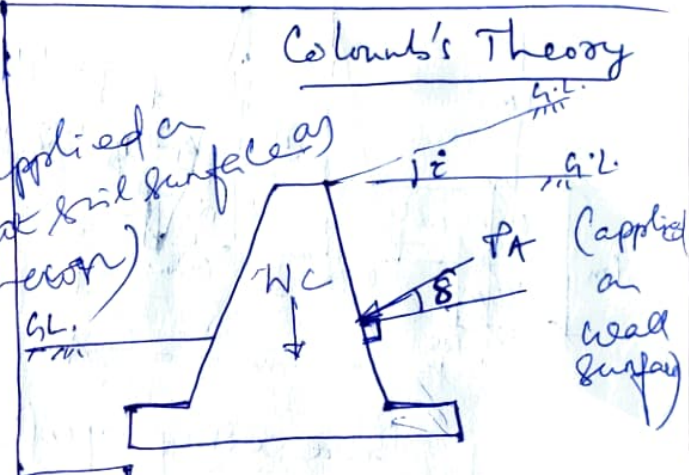 Coloumb's Theory
G.L.
applied on
at soil surface as
i
G.L.
P_A
(applied
on
wall
surface)
WC
δ
G.L.